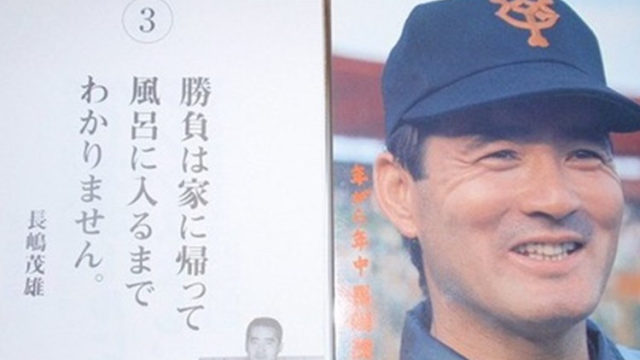 ③
勝負は家に帰って
風呂に入るまで
わかりません。
長嶋茂雄